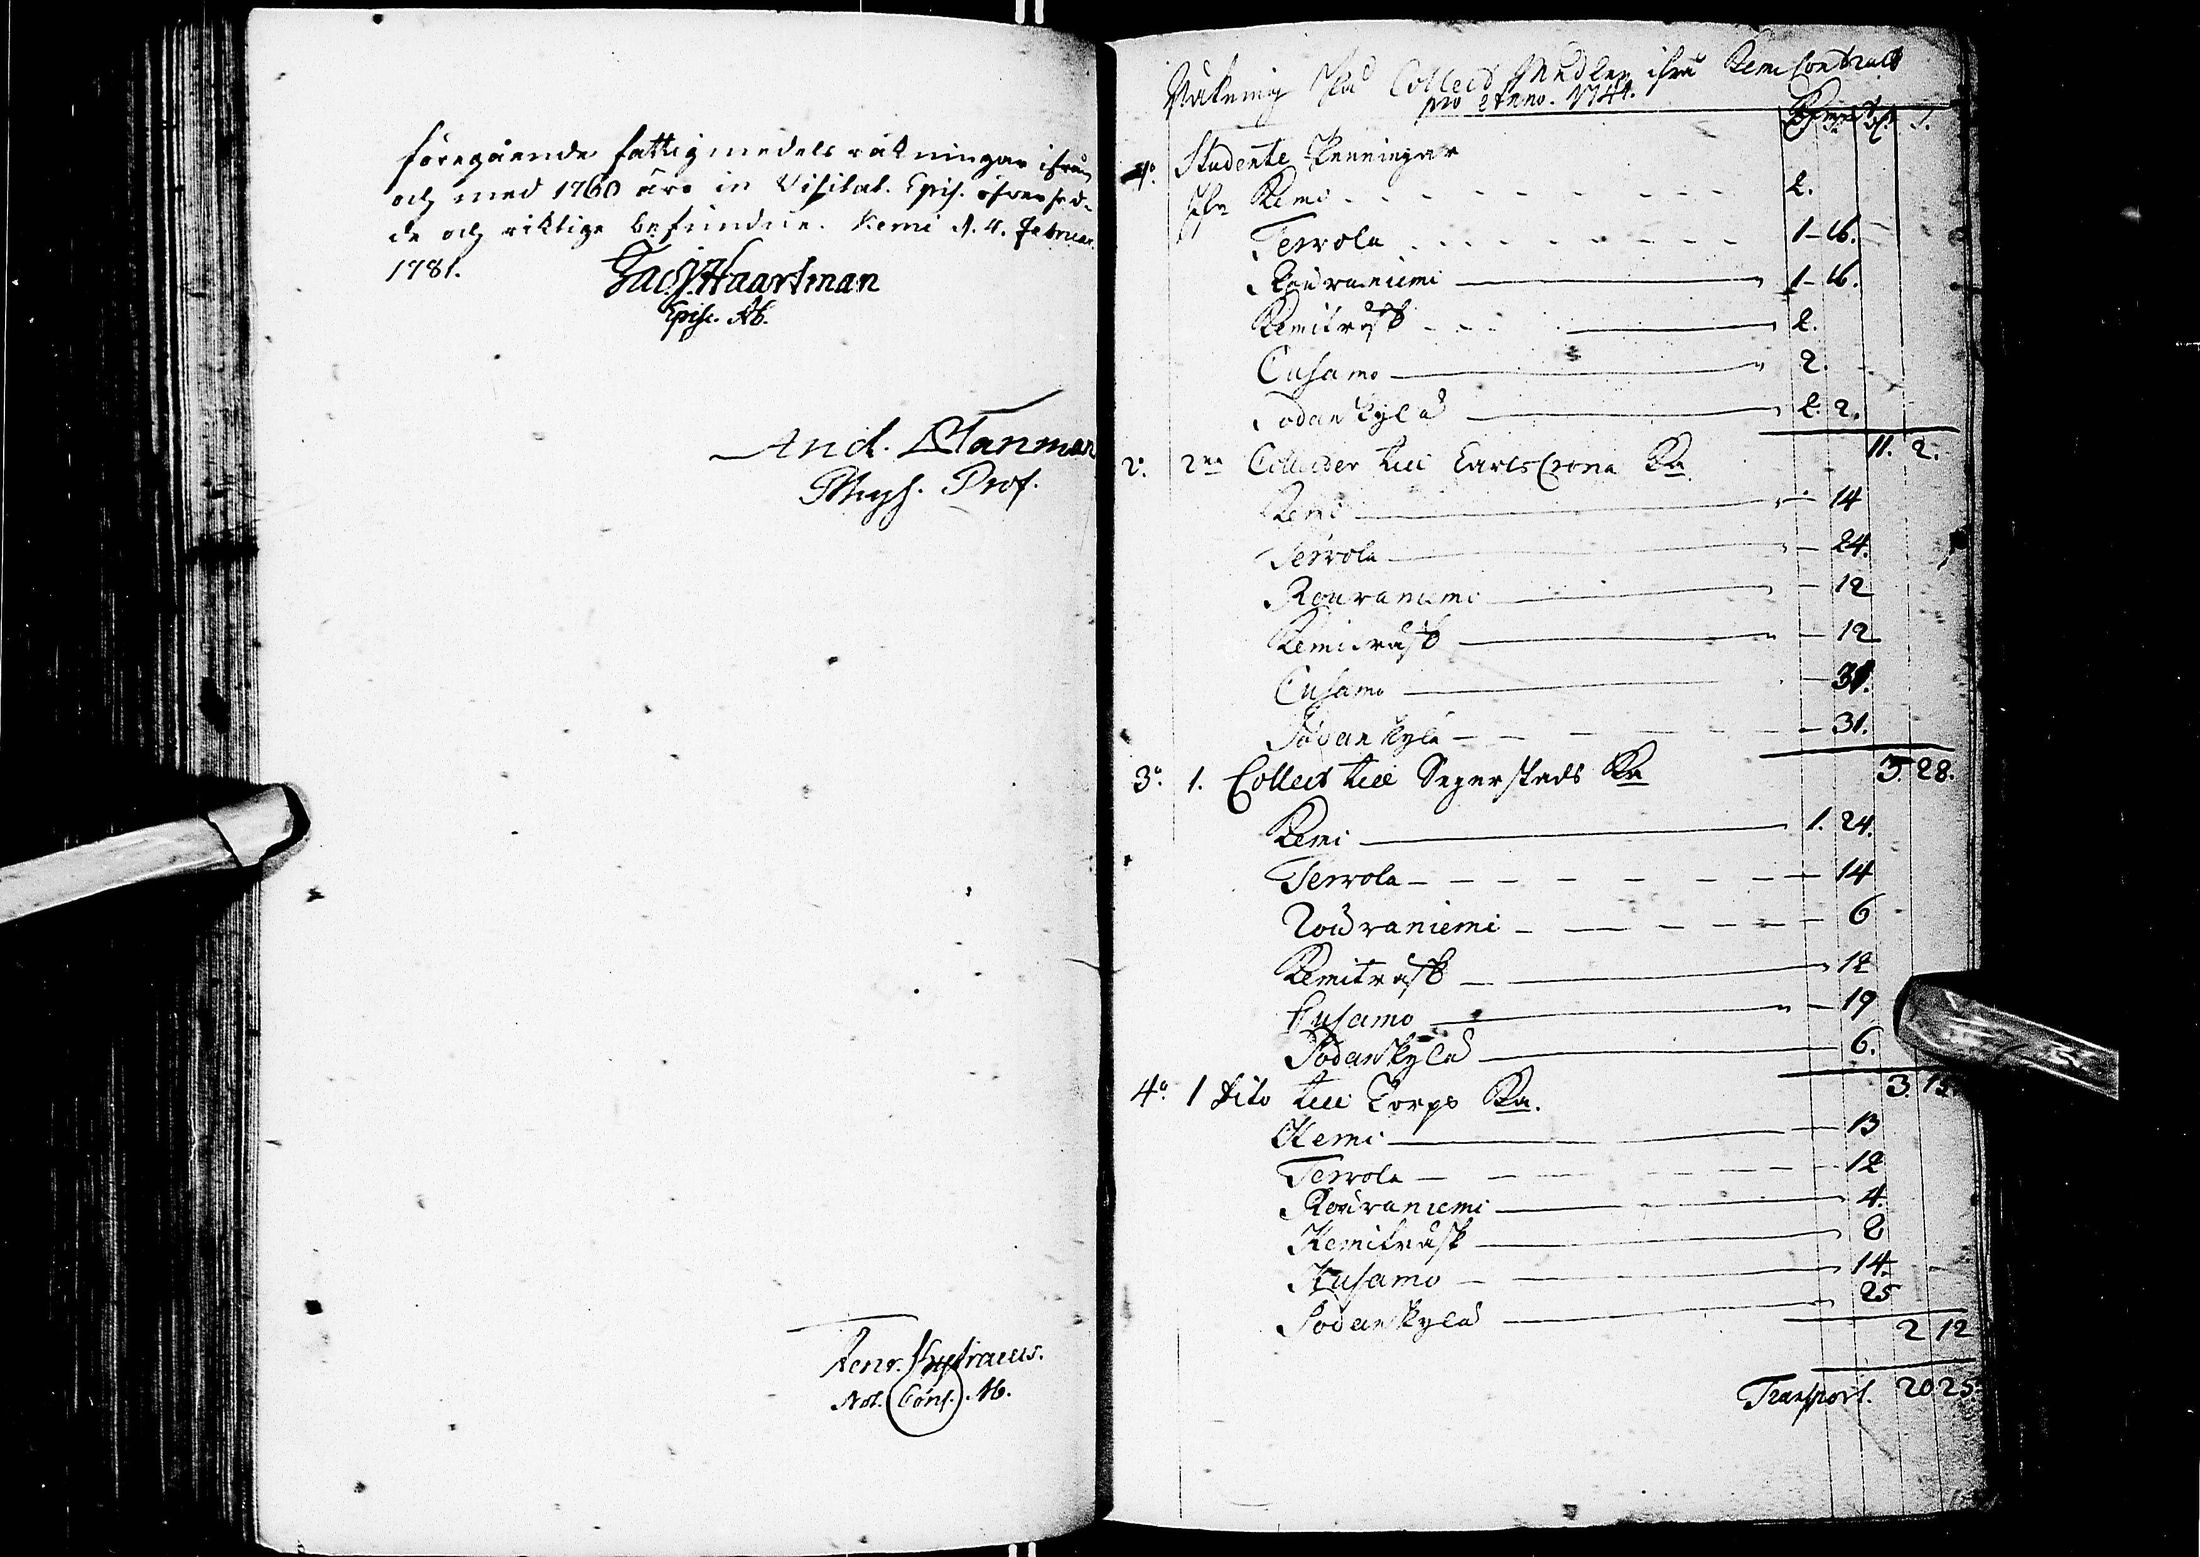 föregående fattigmedels räkningar ifrån
och med 1760 äro in Visitat. Episc. öfversed-
de och riktige befundne. Kemi d. 4. Februar.
1781.
Jac. Haartman
Episc. Ab.
And. Planman
Phys. Prof.
Henr.
Not. Cons. Ab.
Räkning På Collect Medlen ifrån Kemi Contract
pro Anno. 1744.
1º. Studente Penningar
ifrn Kemi 2.
Tervola 1 - 16.
Rovaniemi 1 - 16.
Kemiträsk 2.
Cusamo 2.
Sodankylä 2. 2.
11. 2.
2º. 2ne Collecter till CarlsCrona Ka
Kemi - 14
Tervola - 24.
Rouvaniemi - 12
Kemiträsk - 12
Cusamo - 31.
Sodankylä - 31.
3. 28.
3º. 1. Collect till Segerstads Ka
Kemi 1. 24.
Tervola - 14
Rouvaniemi - 6
Kemiträsk 12
Cusamo - 19
Sodankylä 6.
3.
4º. 1 dito till Torps Ka.
Kemi - 13
Tervola - 12
Rouvaniemi 4.
Kemiträsk 8
Kusamo 14.
Sodankylä 25
2 12
Transport. 20 25.